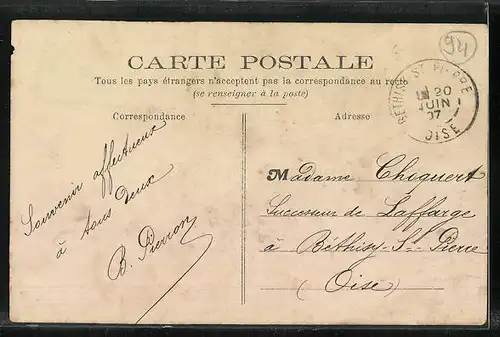 94
CARTE POSTALE
Tous les pays étrangers n'acceptent pas la correspondance au recto
(se renseigner à la poste)
BÉTHISY-ST-PIERRE
20
JUIN
07
OISE
Correspondance
Souvenir affectueux
à tous deux
B. Pierron
Adresse
Madame Choquert
Successeur de Laffarge
à Béthisy-St-Pierre
(Oise)